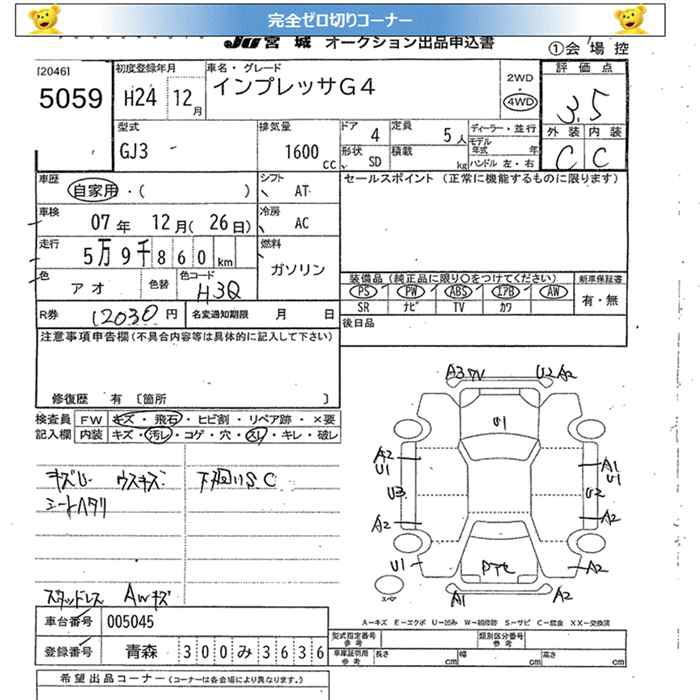 完全ゼロ切りコーナー
JU 宮城 オークション出品申込書
①会場控
[2046]
5059
初度登録年月
H24 12月
車名・グレード
インプレッサG4
2WD
・
4WD
評価点
3.5
外装 内装
C C
型式
GJ3
排気量
1600 cc
ドア 4
定員 5人
形状 SD
積載 kg
ディーラー・並行
モデル年式 年
ハンドル 左・右
車歴
自家用・( )
シフト AT
セールスポイント (正常に機能するものに限ります)
車検
07年 12月( 26日)
冷房 AC
走行
5万9千860km
燃料
ガソリン
色
アオ
色替
色コード
H3Q
装備品 (純正品に限り○をつけてください)
新車保証書
PS PW ABS エアB AW
SR ナビ TV カワ
有・無
R券 12030円
名変通知期限 月 日
後日品
注意事項申告欄(不具合内容等は具体的に記入して下さい)
修復歴 有 〔箇所 〕
検査員記入欄
FW キズ・飛石・ヒビ割・リペア跡・×要
内装 キズ・汚レ・コゲ・穴・スレ・キレ・破レ
キズU ウスキズ 下廻りS.C
シートヘタリ
スタッドレス AWキズ
A3 U2 A2
U1
A2 U1
A1 U1
U3 U2
A2 A2
U1 A2
A1 A2
スペア
A−キズ E−エクボ U−凹み W−補修跡 S−サビ C−腐食 XX−交換済
車台番号 005045
登録番号 青森 300 み 3636
型式指定番号 参考
類別区分番号 参考
車庫証明用 参考 長さ cm 幅 cm 高さ cm
希望出品コーナー (コーナーは各会場により異なります。)